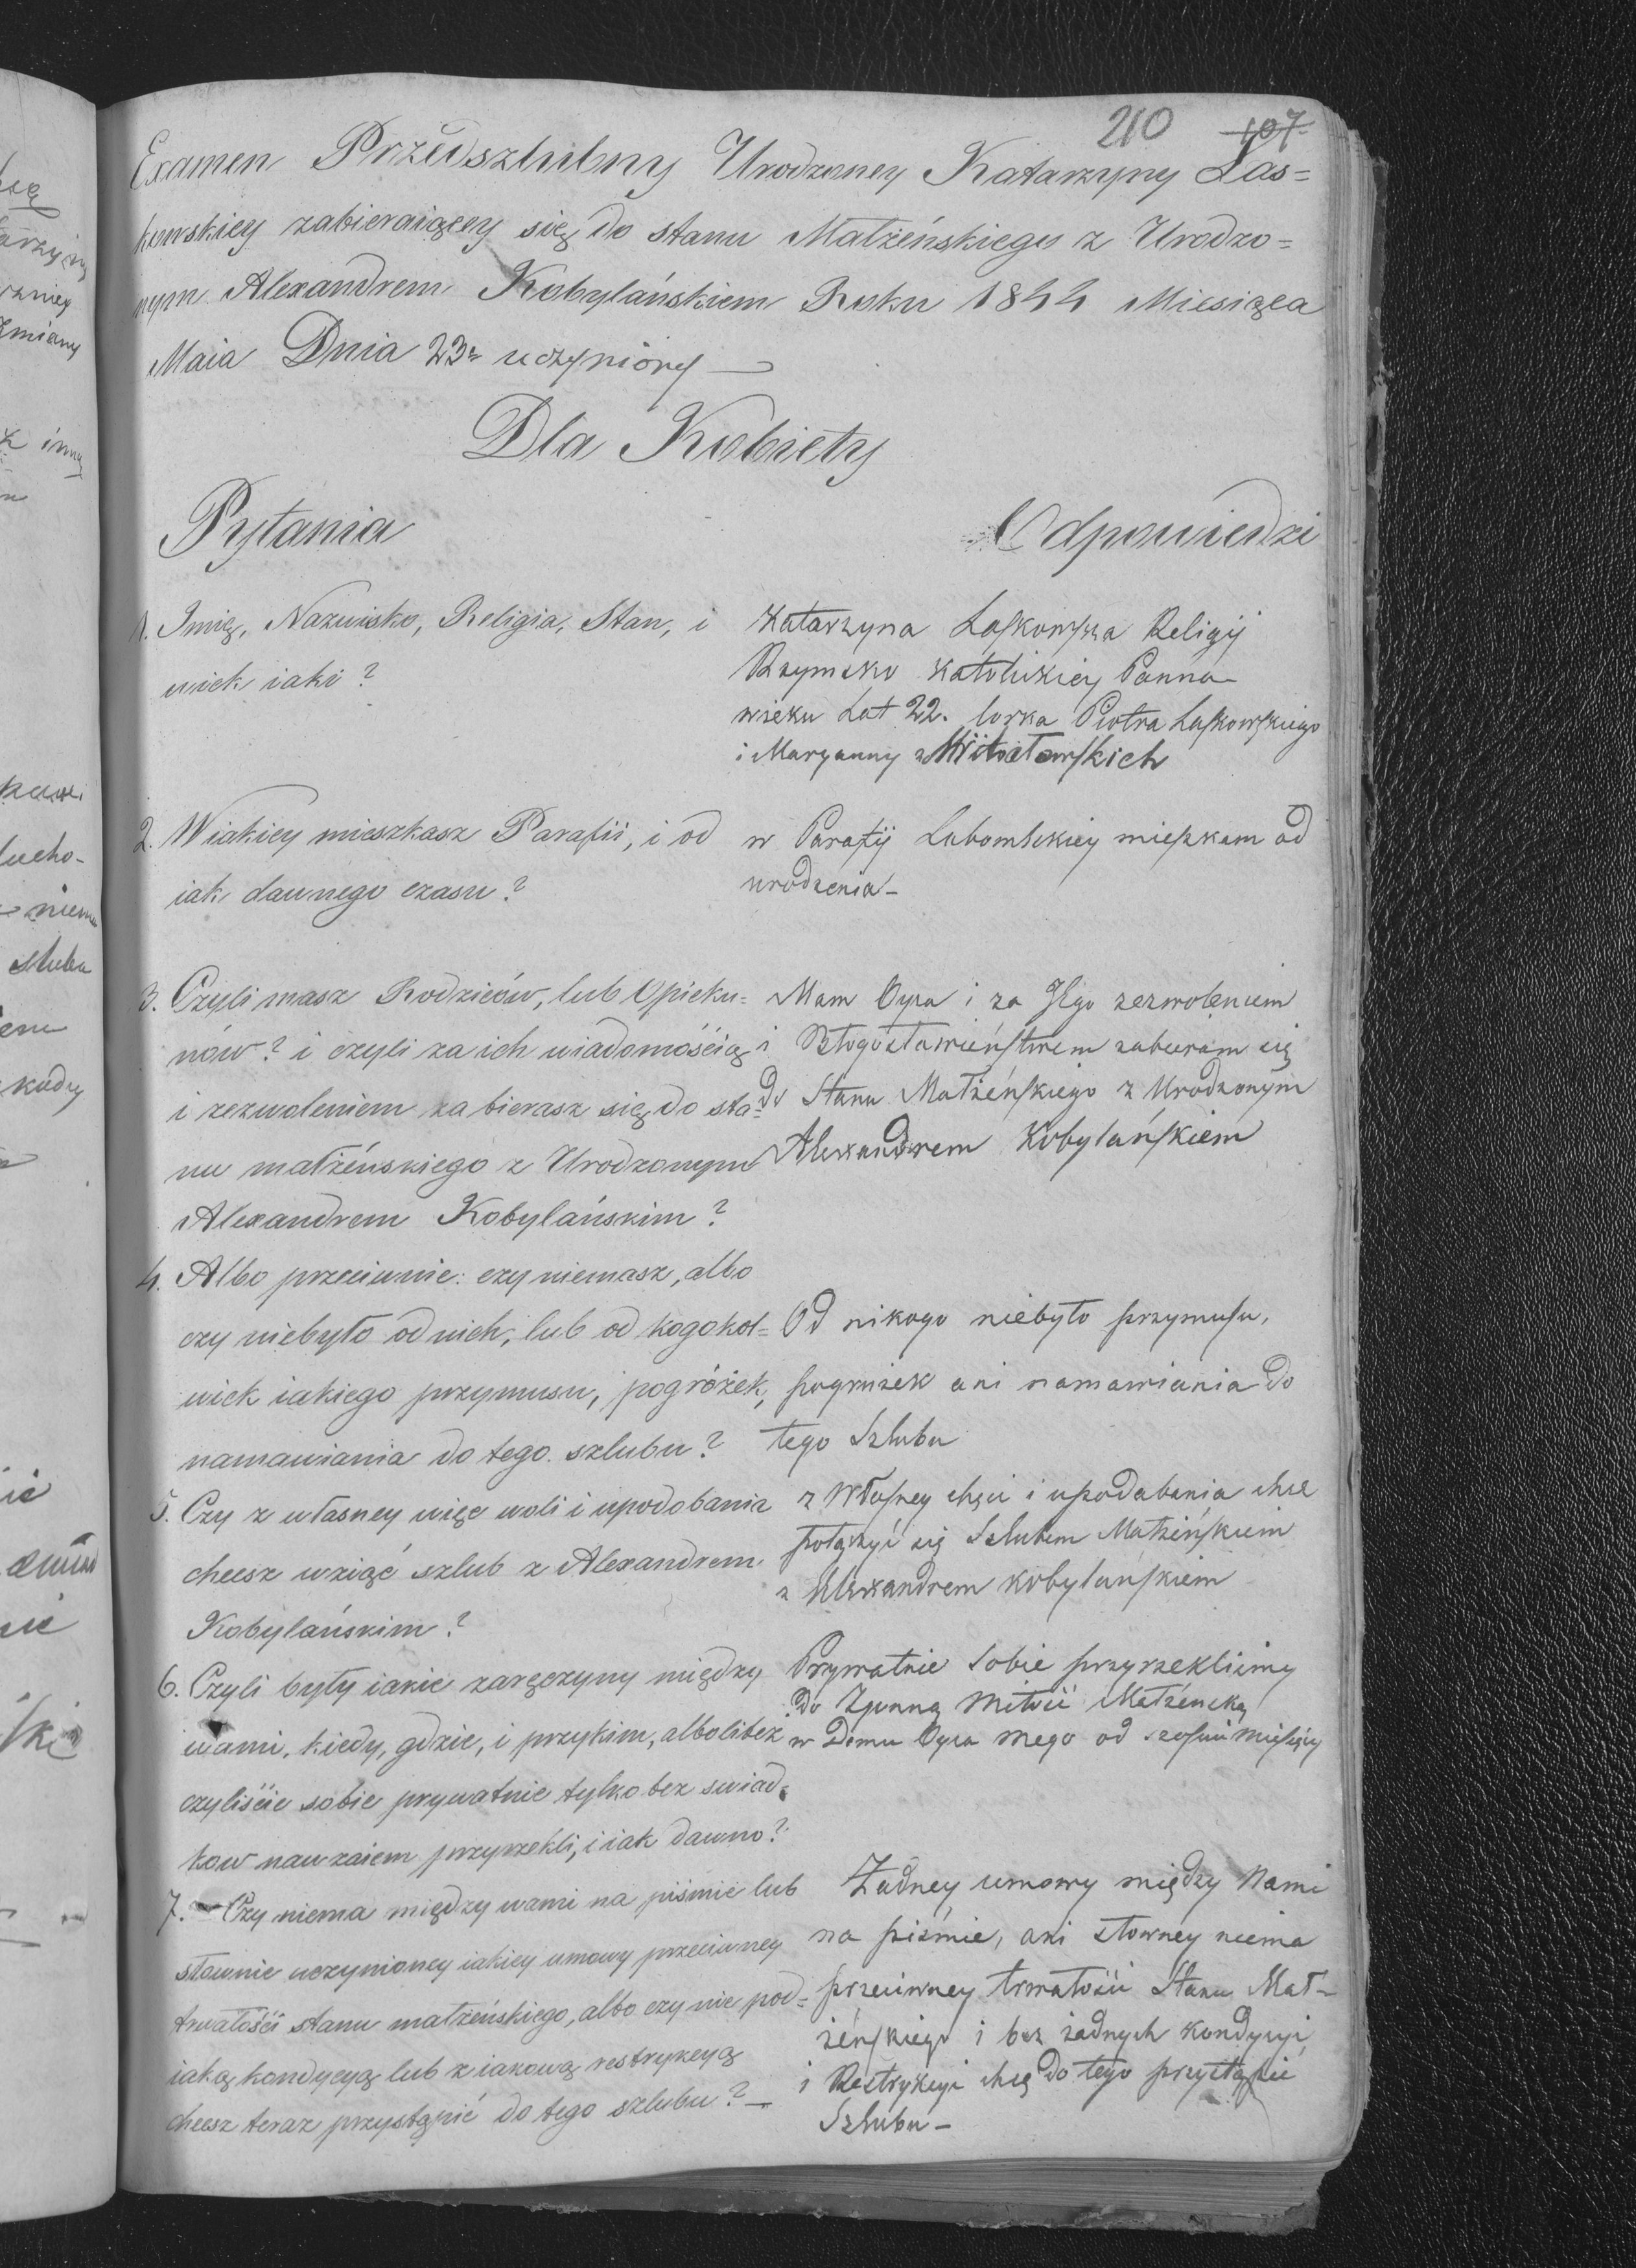 210 107
Examen Przedszlubny Urodzoney Katarzyny Las=
kowskiey zabieraiącey się do stanu Małżeńskiego z Urodzo=
nym Alexandrem Kobylańskiem Roku 1844 Miesiąca
Maia Dnia 23º uczyniony —
Dla Kobiety
Pytania
Odpowiedzi
1. Imię, Nazwisko, Religia, Stan, i
wiek iaki?
Katarzyna Laskowska Religij
Rzymsko Katolickiey Panna
wieku Lat 22. Corka Piotra Laskowskiego
i Maryanny z
2. W iakiey mieszkasz Parafii, i od
iak dawnego czasu?
w Parafij Lubomlskiey mieszkam od
urodzenia –
3. Czyli masz Rodziców, lub Opieku=
nów? i czyli za ich wiadomością
i zezwoleniem zabierasz się do sta=
nu małżeńskiego z Urodzonym
Alexandrem Kobylańskim?
Mam Oyca i za Jego zezwoleniem
i Błogosławieństwem zabieram się
do Stanu Małżeńskiego z Urodzonym
Alexandrem Kobylańskiem
4. Albo przeciwnie: czy niemasz, albo
czy niebyło od nich, lub od kogokol=
wiek iakiego przymusu, pogróżek,
namawiania do tego szlubu?
Od nikogo niebyło przymusu,
pogrużek ani namawiania do
tego Szlubu
5. Czy z własney więc woli i upodobania
chcesz wziąć szlub z Alexandrem
Kobylańskim?
z Własney chęci i upodabania chce
połączyć się Szlubem Małżeńskiem
z Alexandrem Kobylańskiem
6. Czyli były iakie zaręczyny między
wami, kiedy, gdzie, i przy kim, albo li też
czyliście sobie prywatnie tylko bez swiad=
kow nawzaiem przyrzekli, i iak dawno?
Prywatnie Sobie przyrzekliśmy
do Zgonną Miłość Małżeńską
w Domu Oyca mego od sześciu Miesięcy
7. – Czy niema między wami na piśmie lub
słownie uczynioney iakiey umowy przeciwney
trwałości stanu małżeńskiego, albo czy nie pod=
iaką kondycyą lub z iakową restrykcyą
chcesz teraz przystąpić do tego szlubu? —
Żadney umowy między Nami
na piśmie, ani słowney niema
przeciwney trwałości Stanu Mał–
żeńskiego i bez żadnych Kondycyi,
i Restrykcyi chcę do tego przystąpić
Szlubu –